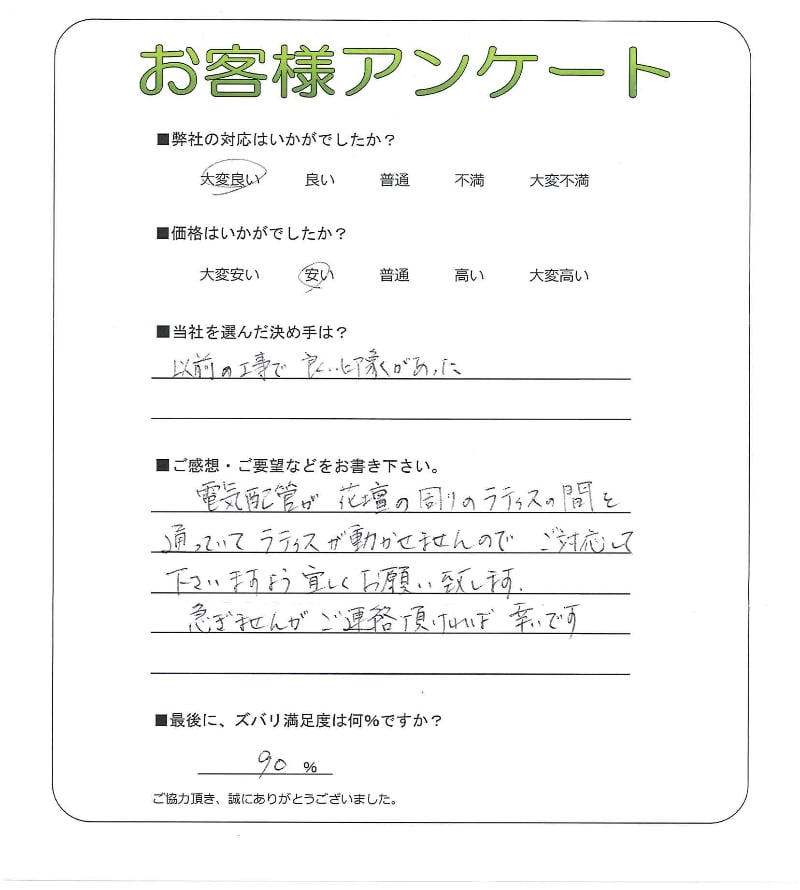 お客様アンケート
■弊社の対応はいかがでしたか？
大変良い 良い 普通 不満 大変不満
■価格はいかがでしたか？
大変安い 安い 普通 高い 大変高い
■当社を選んだ決め手は？
以前の工事で 良い印象があった
■ご感想・ご要望などをお書き下さい。
電気配管が 花壇の周りのラティスの間を
通っていて ラティスが動かせませんので ご対応して
下さいますよう 宜しくお願い致します.
急ぎませんが ご連絡頂ければ 幸いです
■最後に、ズバリ満足度は何%ですか？
90 %
ご協力頂き、誠にありがとうございました。